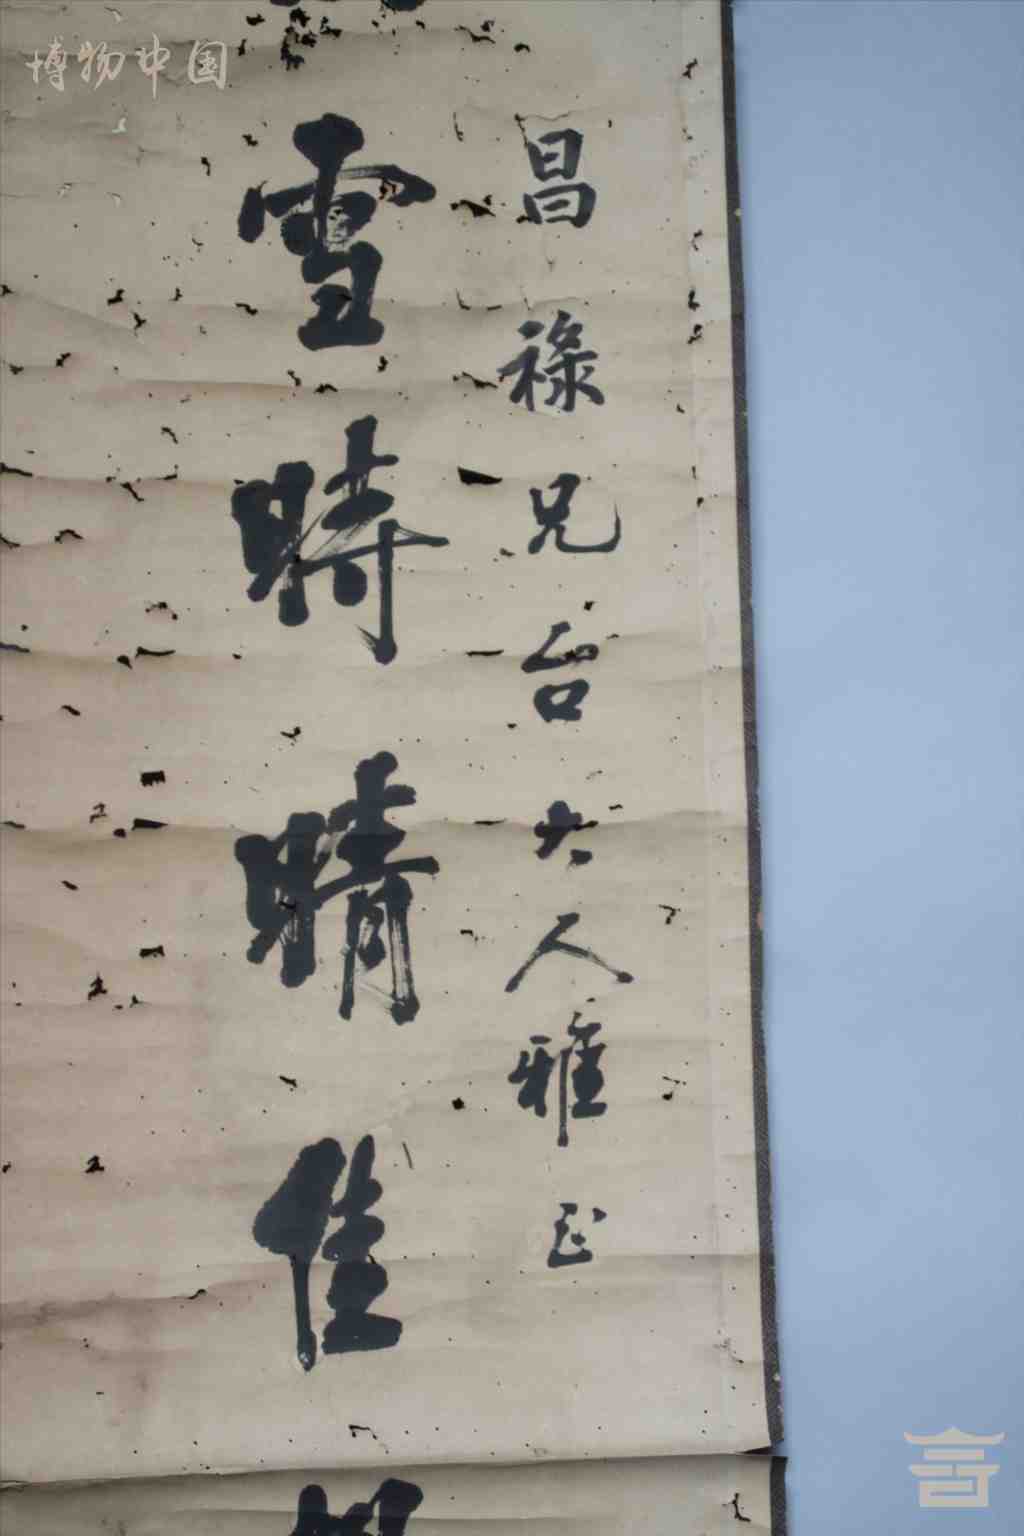 博物中国
昌祿兄台大人雅正
雪時晴佳